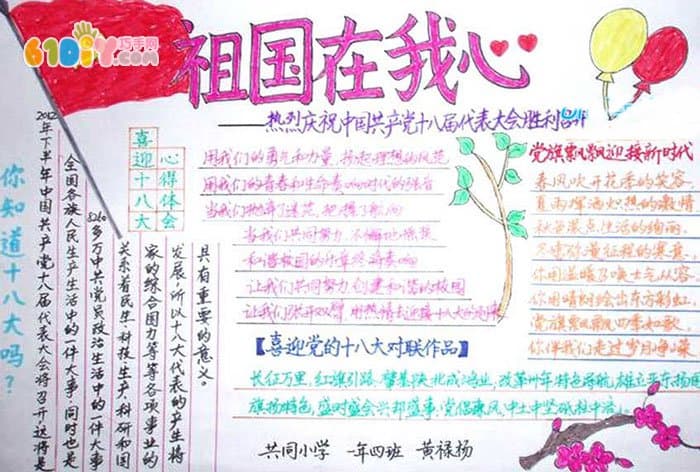 610diy巧手网
祖国在我心
——热烈庆祝中国共产党十八届代表大会胜利召开
喜迎十八大
心得体会
你知道十八大吗？
2012年下半年中国共产党十八届代表大会将召开，这将是
全国各族人民生产生活中的一件大事，同时也是
8260多万中共党员政治生活中的一件大事
关系着民生、科技生产、科研和国
家的综合国力等等各项事业的
发展，所以十八大代表的产生将
具有重要的意义。
用我们的勇气和力量，扬起理想的风范
用我们的青春和生命奏响时代的强音
当我们抛弃了迷茫，把握了航向
当我们共同努力，不懈地
和谐校园的计章终将奏响
让我们共同努力创建和谐的校园
让我们张开双臂，用热情去迎接十八大的到来
党旗飘飘迎接新时代
春风吹开花季的笑容
夏雨挥洒火热的激情
秋
你用温暖召唤士气从容
你用晴朗绘出东方彩虹
党旗飘飘四季如歌
你伴我们走过岁月峥嵘
【喜迎党的十八大对联作品】
长征万里，红旗引路，擘基挟北成鸿业，改革卅年，特色导航，雄立亚东扬国
旗扬特色，盛时盛会兴邦盛事，党倡廉风，中土中坚砥柱中流。
共同小学 一年四班 黄禄杨